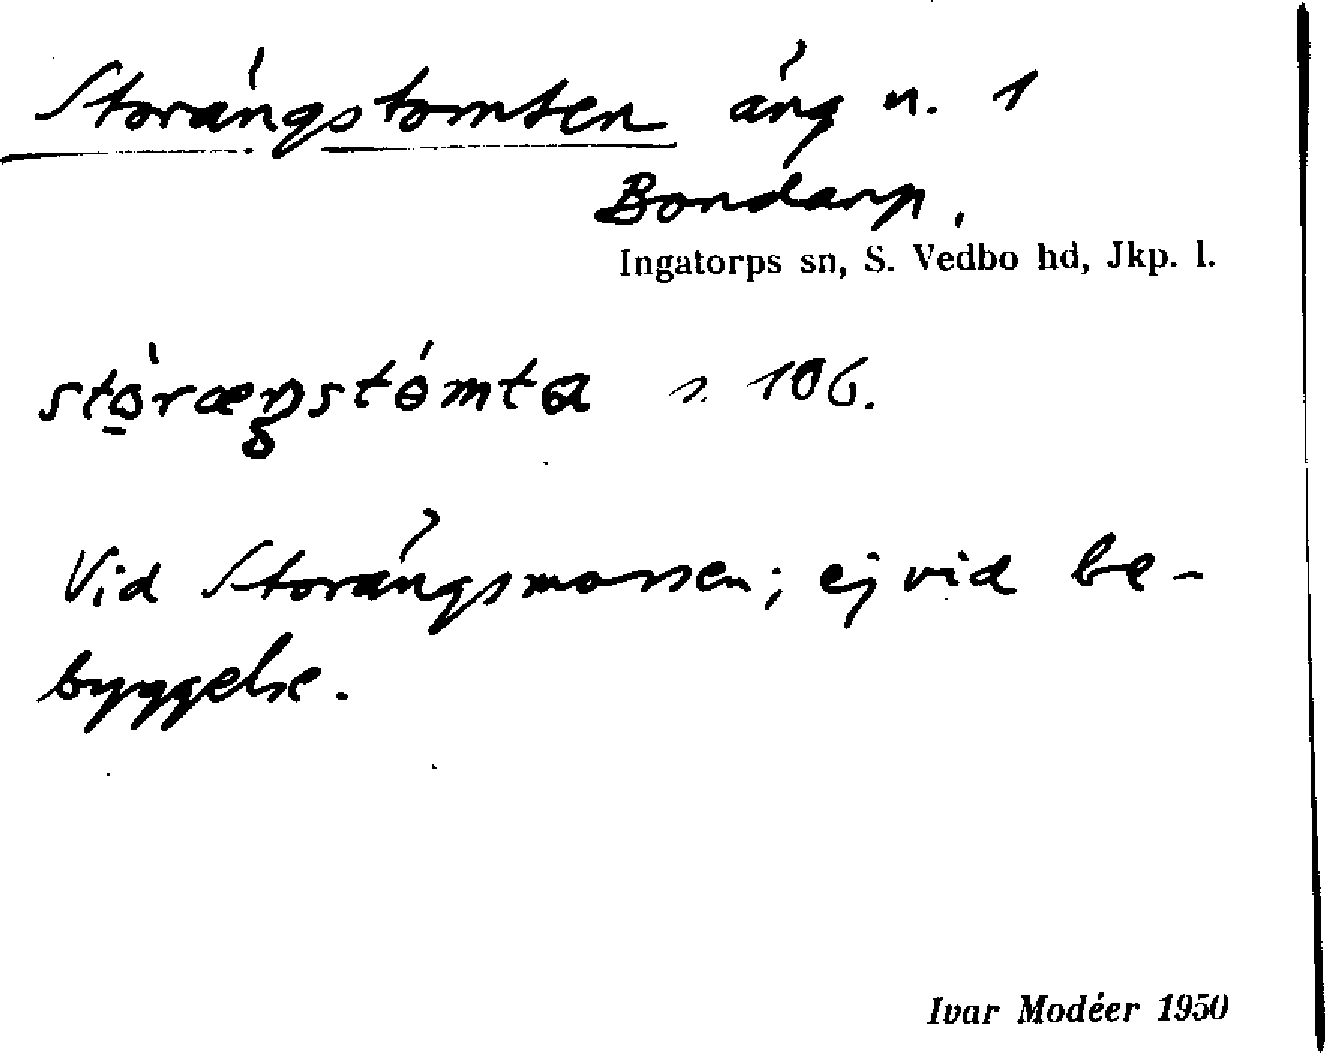 Storängstomten äng n. 1
Bondarp.
Ingatorps sn, S. Vedbo hd, Jkp. l.
stòræŋstómta n. 106.
Vid Storängsmossen; ej vid be-
byggelse.
Ivar Modéer 1950